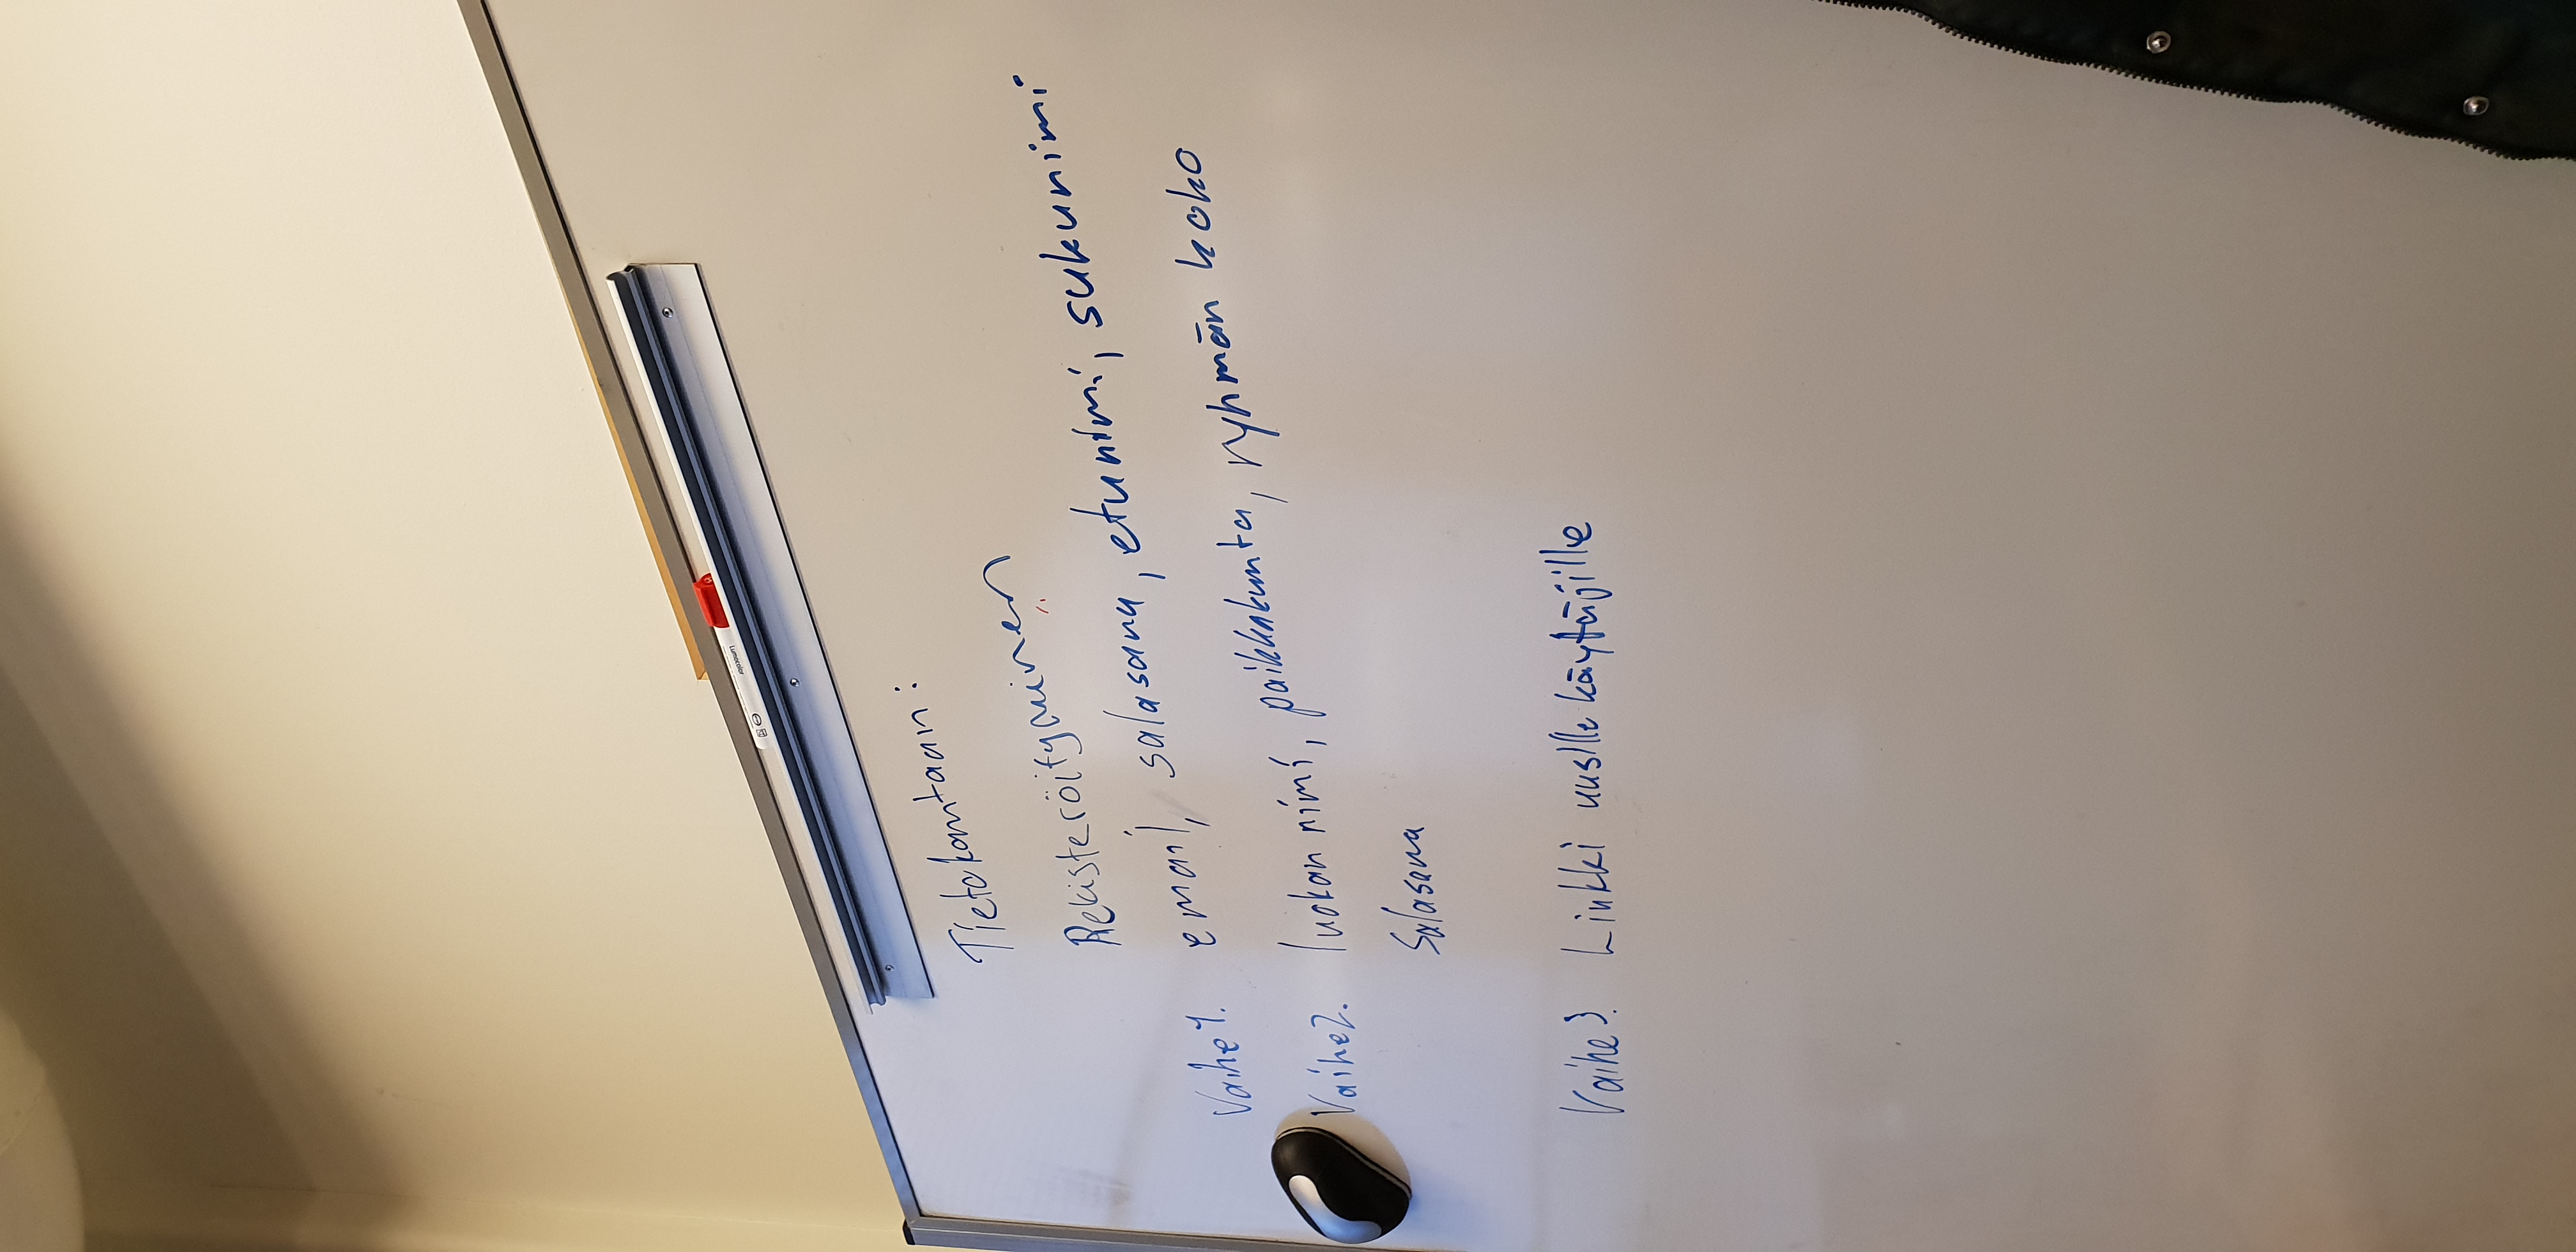 Lumocolor
Tietokantaan:
Rekisteröityminen
Vaihe 1. email, salasana, etunimi, sukunimi
Vaihe 2. luokan nimi, paikkakunta, ryhmän koko
Salasana
Vaihe 3. Linkki uusille käyttäjille